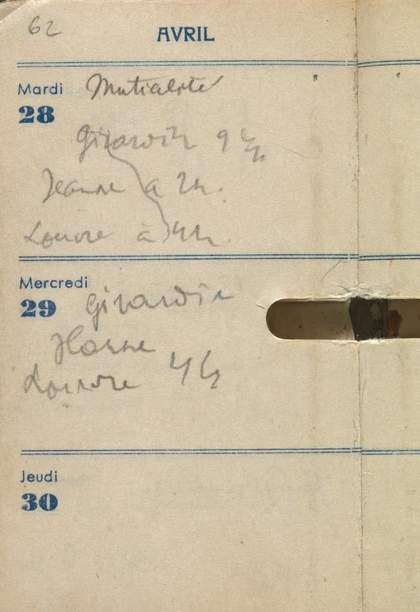 62
AVRIL
Mardi Mutialité
28
Girardin 9 h
Jeanne à 2 h.
Louvre à 4 h.
Mercredi
29 Girardin
Jeanne
Louvre 4 h
Jeudi
30